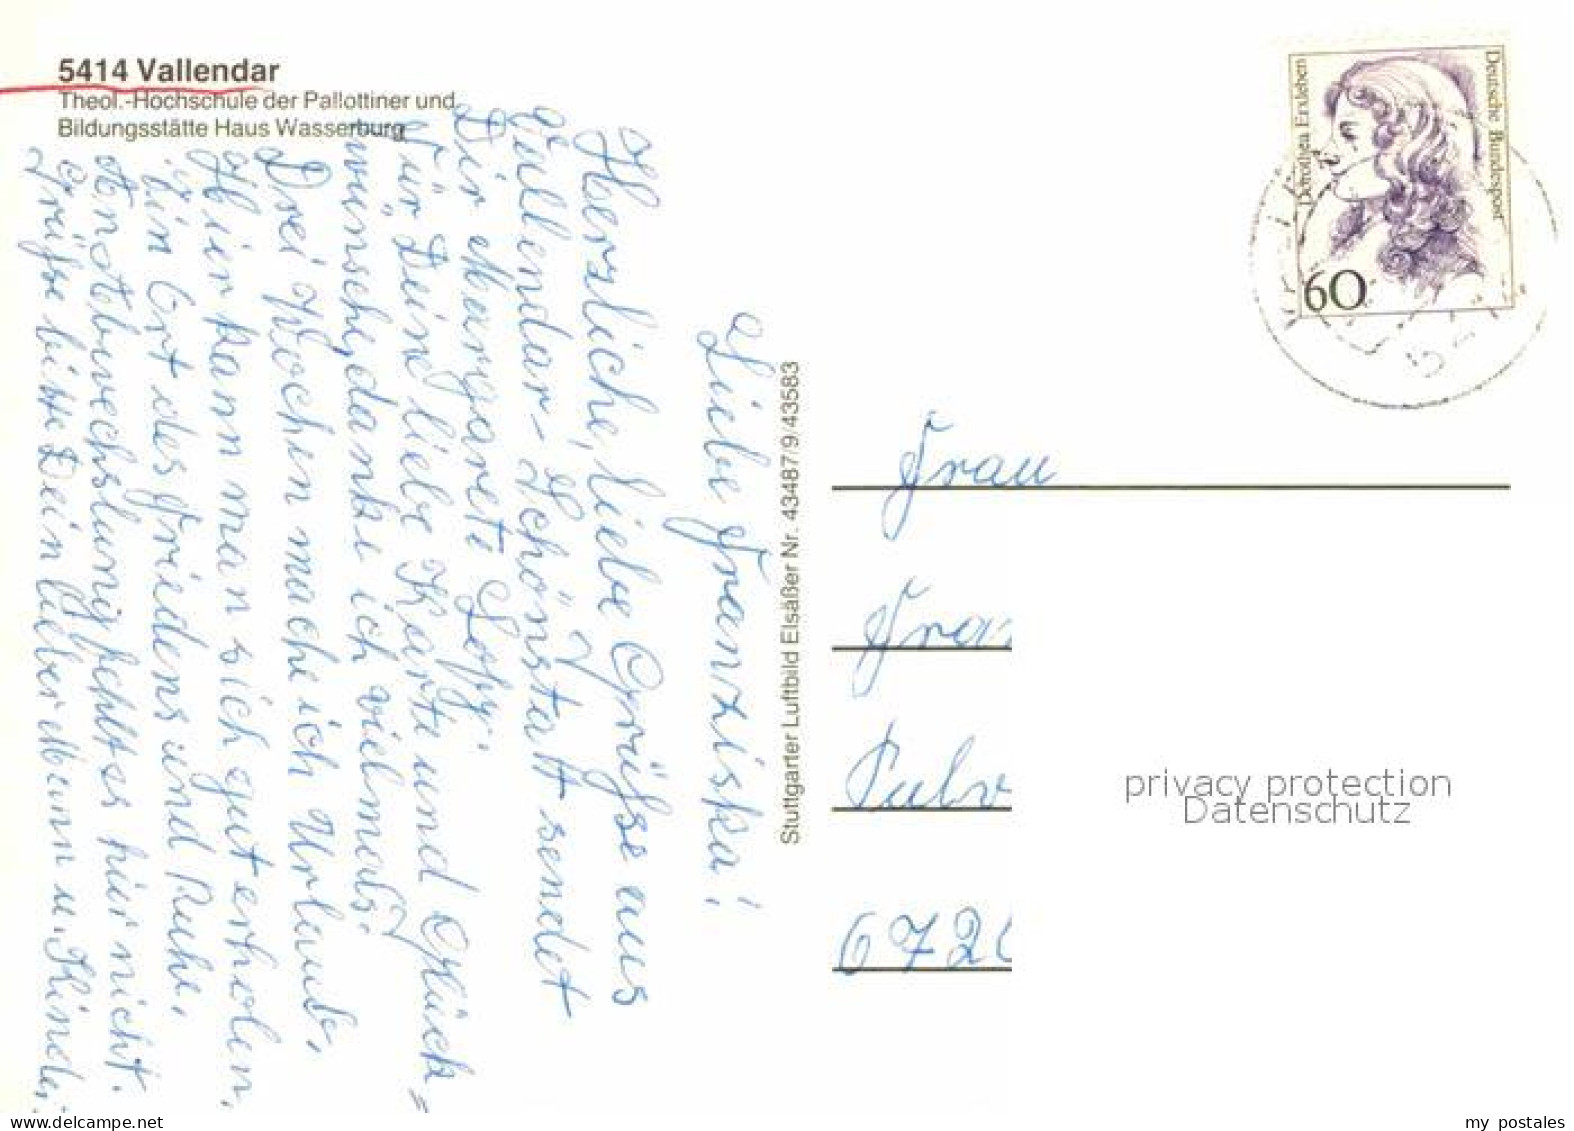 5414 Vallendar
Theol.-Hochschule der Pallottiner und
Bildungsstätte Haus Wasserburg
Liebe Franziska!
Herzliche, liebe Grüße aus
Vallendar-Schönstatt sendet
Dir Margarete Sopp.
Für Deine liebe Karte und Glück=
wünsche, danke ich vielmals.
Drei Wochen mache ich Urlaub.
Hier kann man sich gut erholen.
Ein Ort des Friedens und Ruhe.
An Abwechslung fehlt es hier nicht.
Grüße bitte Dein lieber Mann u. Kinder.
Stuttgarter Luftbild Elsäßer Nr. 43487/9/43583
Dorothea Erxleben
Deutsche Bundespost
60
Frau
Fran
Pulv
672
privacy protection
Datenschutz
www.delcampe.net
my_postales